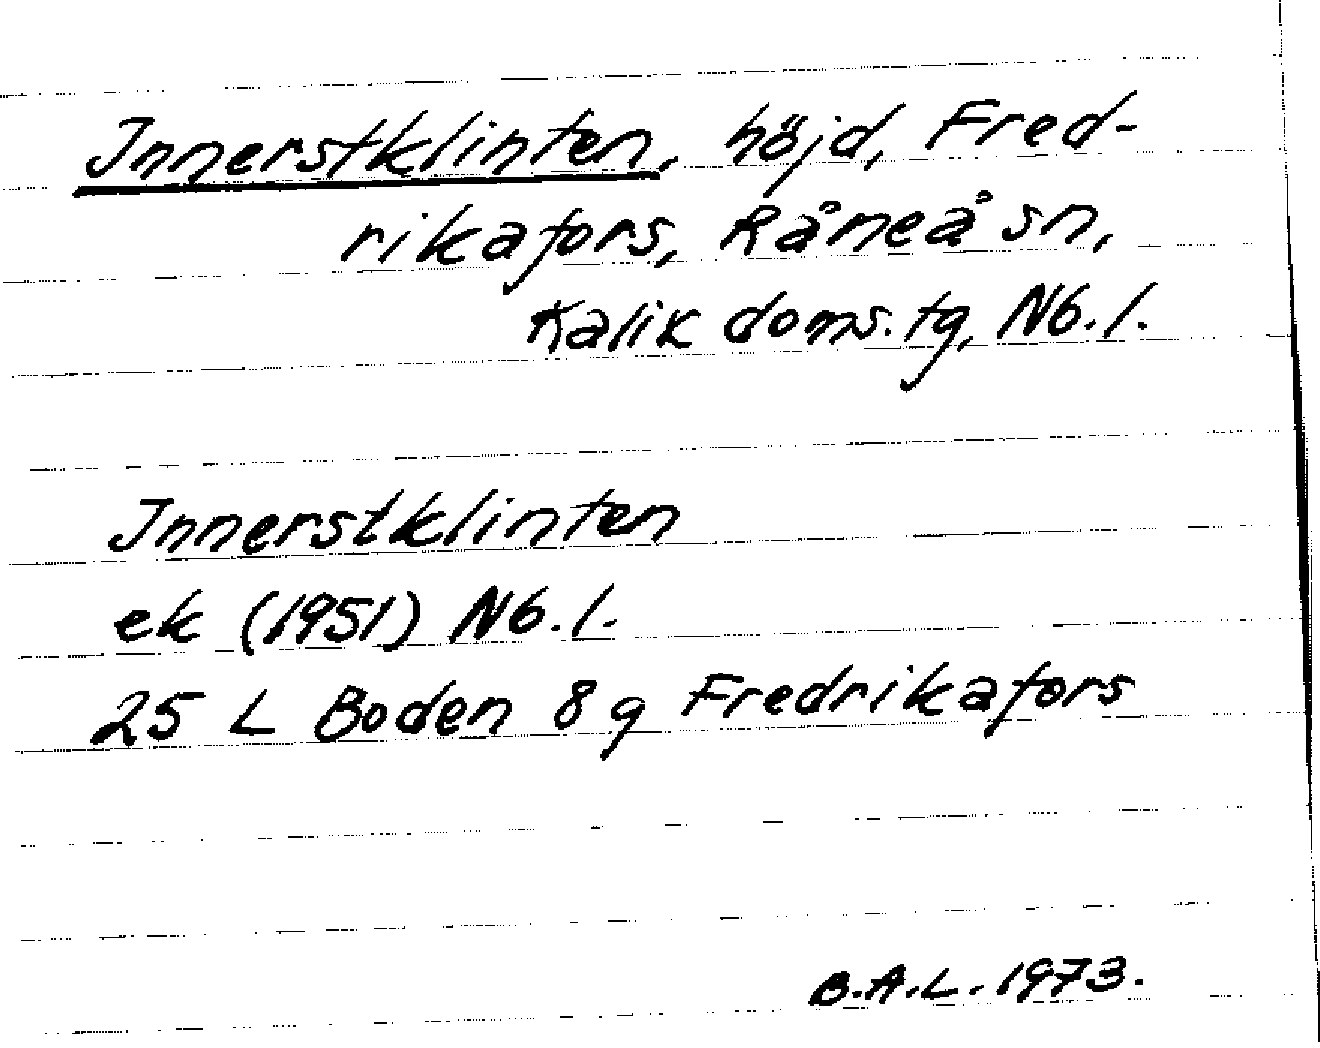 Innerstklinten, höjd, Fred-
rikafors, Råneå sn,
Kalix doms. tg, Nb. l.
Innerstklinten
ek (1951) Nb. l.
25 L Boden 8 g Fredrikafors
B.A.L. 1973.